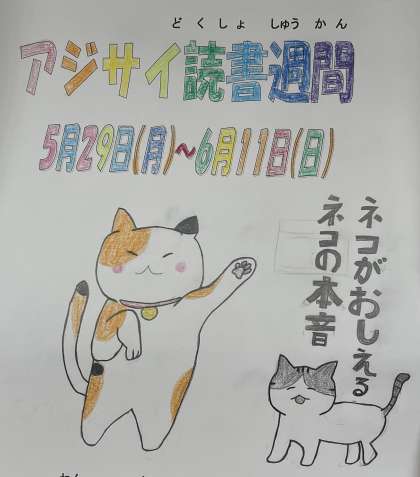 どくしょ しゅうかん
アジサイ読書週間
5月29日(月)~6月11日(日)
ネコがおしえる
ネコの本音